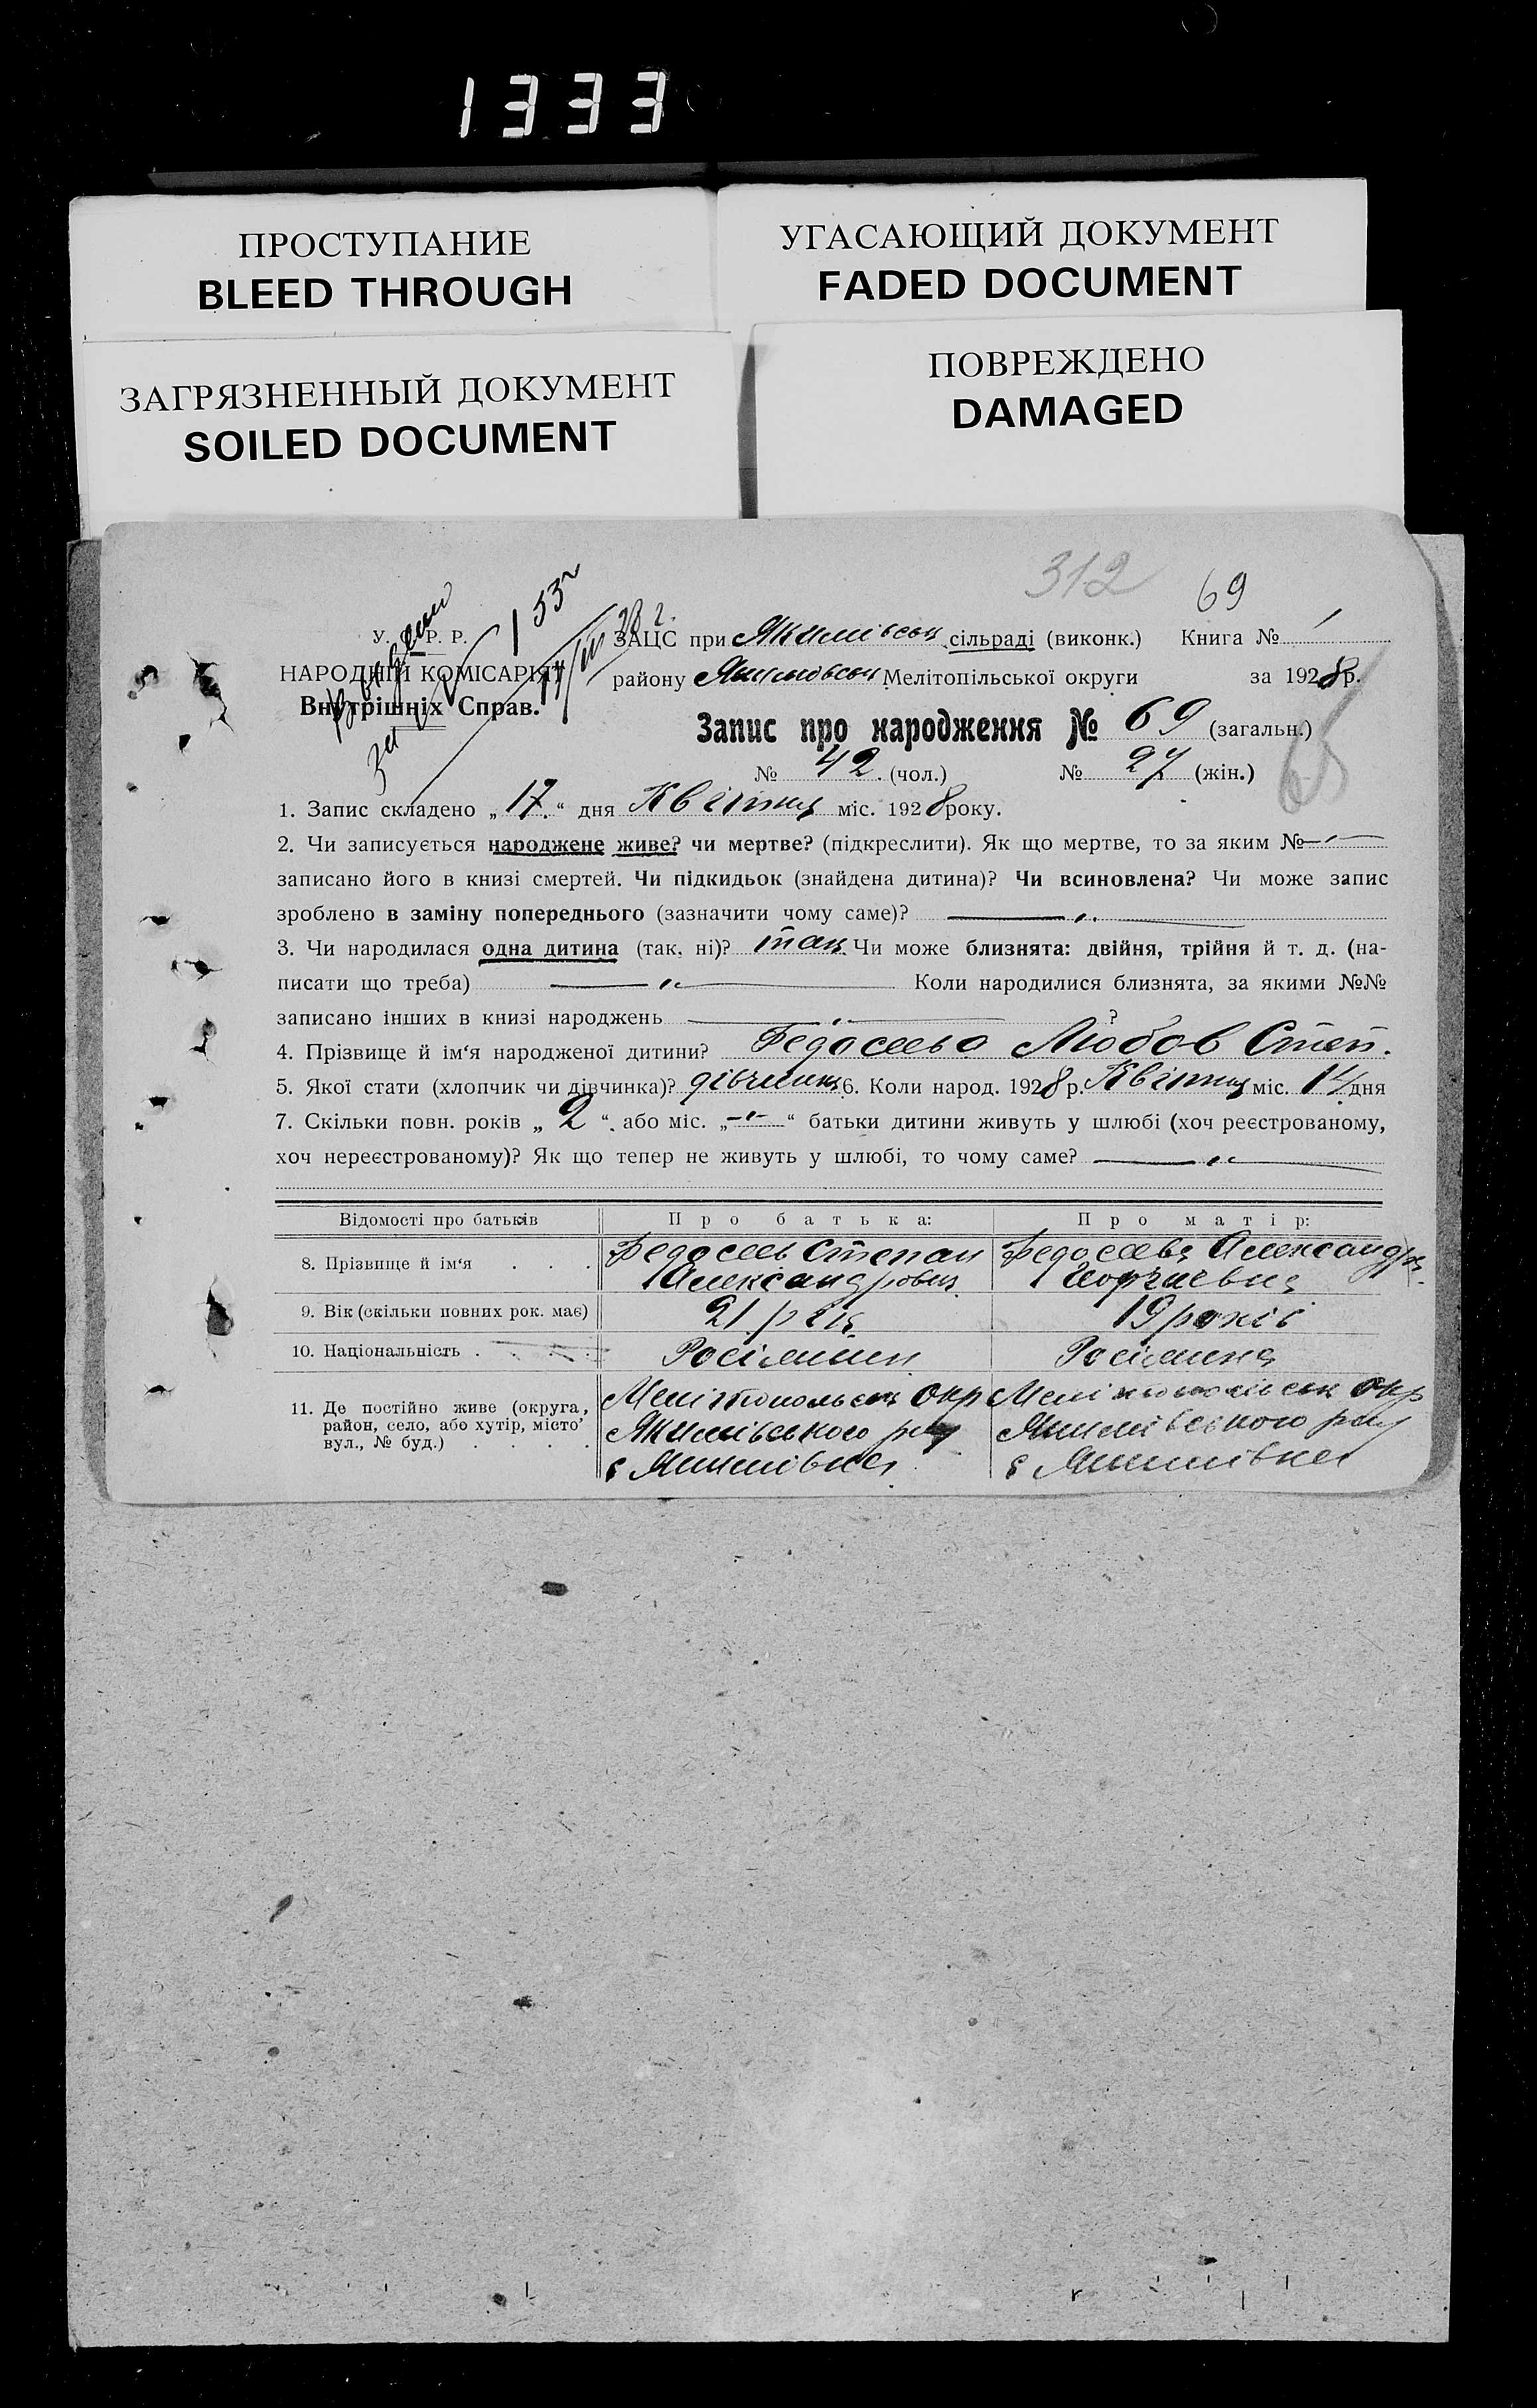 1333
ПРОСТУПАНИЕ
BLEED THROUGH
УГАСАЮЩИЙ ДОКУМЕНТ
FADED DOCUMENT
ЗАГРЯЗНЕННЫЙ ДОКУМЕНТ
SOILED DOCUMENT
ПОВРЕЖДЕНО
DAMAGED
312 69
У. С. Р. Р.
НАРОДНІЙ КОМІСАРІЯТ
Внутрішніх Справ.
за № 1532
ЗАЦС при Якимівськ сільраді (виконк.) Книга №
району Якимовськ Мелітопільської округи за 1928 р.
Запис про народження № 69 (загальн.)
№ 42 (чол.) № 27 (жін.)
65
1. Запис складено „ 17 “ дня Квітня міс. 1928 року.
2. Чи записується народжене живе? чи мертве? (підкреслити). Як що мертве, то за яким №
записано його в книзі смертей. Чи підкидьок (знайдена дитина)? Чи всиновлена? Чи може запис
зроблено в заміну попереднього (зазначити чому саме)?
3. Чи народилася одна дитина (так, ні)? так Чи може близнята: двійня, трійня й т. д. (на-
писати що треба) Коли народилися близнята, за якими №№
записано інших в книзі народжень ?
4. Прізвище й ім‘я народженої дитини? Федосеева Любов Степ.
5. Якої стати (хлопчик чи дівчинка)? дівчинка 6. Коли народ. 1928 р. Квітня міс. 14 дня
7. Скільки повн. років „ 2 “. або міс. „ “ батьки дитини живуть у шлюбі (хоч реєстрованому,
хоч нереєстрованому)? Як що тепер не живуть у шлюбі, то чому саме?
Відомості про батьків Про батька: Про матір:
8. Прізвище й ім‘я . . . Федосеев Степан Федосеева Александра
Александрович Георгиевна
9. Вік (скільки повних рок. має) 21 рік 19 років
10. Національність . Росіянин Росіянка
11. Де постійно живе (округа, район, село, або хутір, місто’ вул., № буд.) . . . . Мелітопольськ Окр Мелітопольськ Окр
Якимівського р-ну Якимівського р-ну
с Якимівка с Якимівка